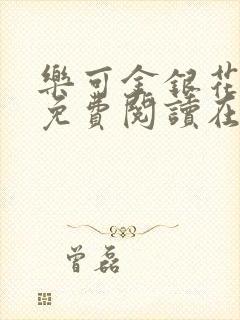 樂可金銀花
免費閱讀在
曾磊